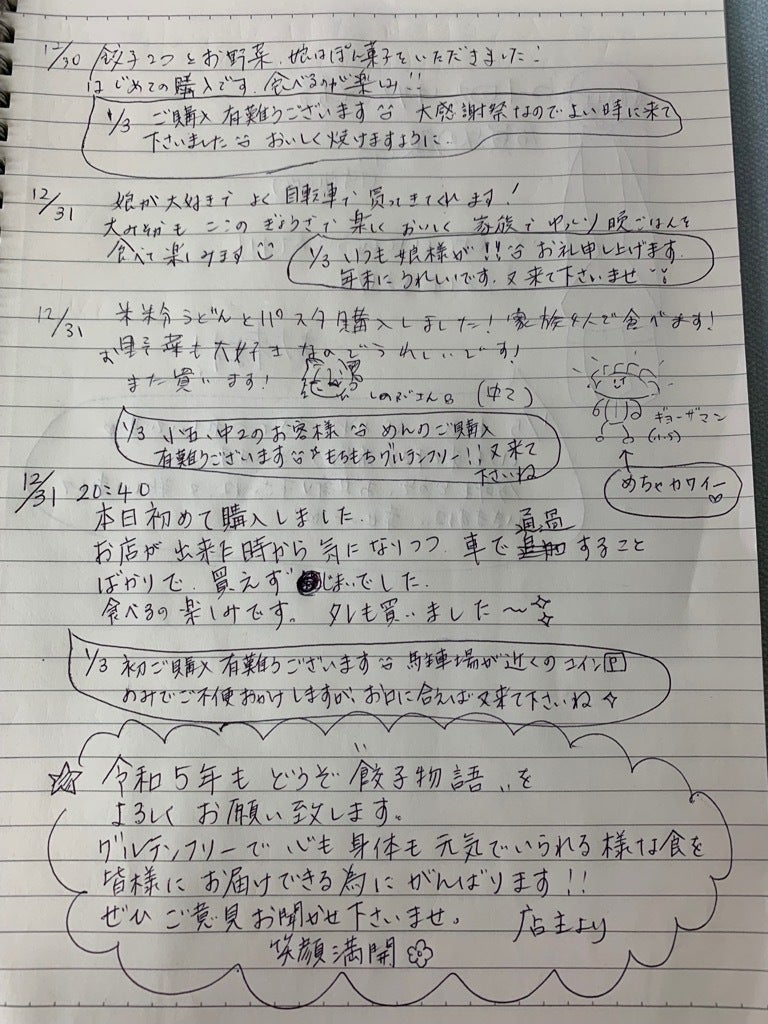 12/30 餃子2つとお野菜、娘はぽん菓子をいただきました!
はじめての購入です。食べるのが楽しみ!!
1/3 ご購入有難うございます 大感謝祭なのでよい時に来て
下さいました おいしく焼けますように。
12/31 娘が大好きで よく自転車で買ってきてくれます!
大みそかも ここのぎょうざで楽しくおいしく 家族でゆっくり晩ごはんを
食べて楽しみます
1/3 いつも娘様が!! お礼申し上げます。
年末にうれしいです。又来て下さいませ
12/31 米粉うどんとパスタ購入しました!家族4人で食べます!
お野菜も大好きなのでうれしいです!
また買います!
しのぶさん (中2)
ギョーザマン
(小5)
めちゃカワイー♡
1/3 小五、中2のお客様 めんのご購入
有難うございます もちもちグルテンフリー!!又来て
下さいね
12/31 20:40
本日初めて購入しました。
お店が出来た時から気になりつつ、車で通過すること
ばかりで、買えずじまいでした。
食べるの楽しみです。タレも買いました〜
1/3 初ご購入有難うございます 駐車場が近くのコインP
のみでご不便おかけしますが、お口に合えば又来て下さいね
☆ 令和5年もどうぞ"餃子物語"を
よろしくお願い致します。
グルテンフリーで心も身体も元気でいられる様な食を
皆様にお届けできる為にがんばります!!
ぜひご意見お聞かせ下さいませ。 店主より
笑顔満開